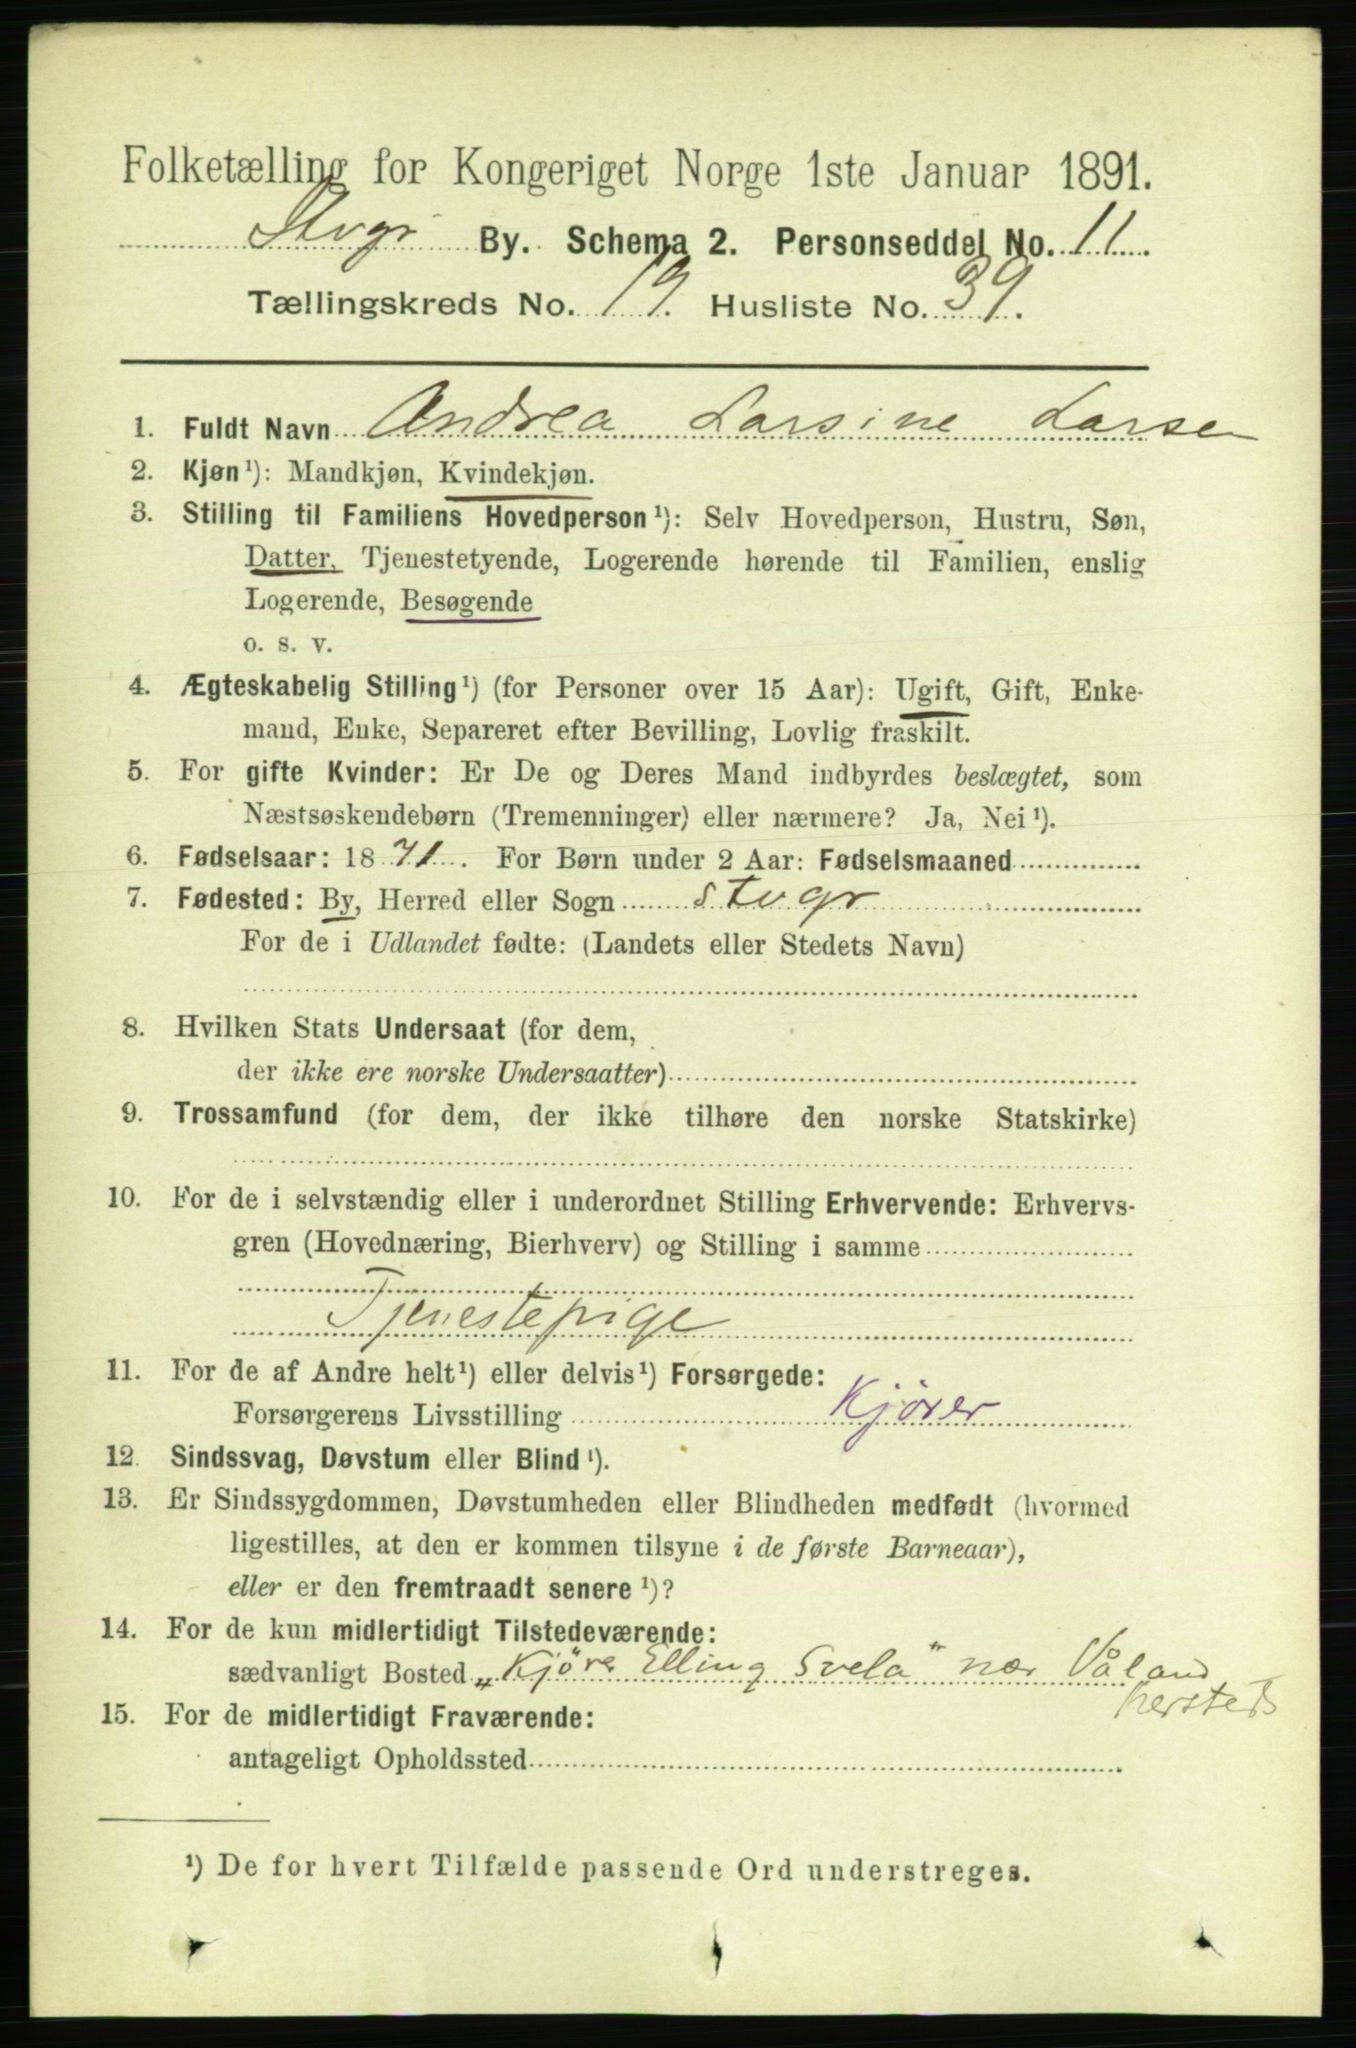 Folketælling for Kongeriget Norge 1ste Januar 1891.
Stvgr By. Schema 2. Personseddel No. 11.
Tællingskreds No. 19. Husliste No. 39.
1. Fuldt Navn Andrea Larsine Larsen
2. Kjøn¹): Mandkjøn, Kvindekjøn.
3. Stilling til Familiens Hovedperson¹): Selv Hovedperson, Hustru, Søn,
Datter, Tjenestetyende, Logerende hørende til Familien, enslig
Logerende, Besøgende
o. s. v.
4. Ægteskabelig Stilling¹) (for Personer over 15 Aar): Ugift, Gift, Enke-
mand, Enke, Separeret efter Bevilling, Lovlig fraskilt.
5. For gifte Kvinder: Er De og Deres Mand indbyrdes beslægtet, som
Næstsøskendebørn (Tremenninger) eller nærmere? Ja, Nei¹).
6. Fødselsaar: 1871. For Børn under 2 Aar: Fødselsmaaned
7. Fødested: By, Herred eller Sogn stvgr
For de i Udlandet fødte: (Landets eller Stedets Navn)
8. Hvilken Stats Undersaat (for dem,
der ikke ere norske Undersaatter)
9. Trossamfund (for dem, der ikke tilhøre den norske Statskirke)
10. For de i selvstændig eller i underordnet Stilling Erhvervende: Erhvervs-
gren (Hovednæring, Bierhverv) og Stilling i samme
Tjenestepige
11. For de af Andre helt¹) eller delvis¹) Forsørgede:
Forsørgerens Livsstilling Kjører
12. Sindssvag, Døvstum eller Blind¹).
13. Er Sindssygdommen, Døvstumheden eller Blindheden medfødt (hvormed
ligestilles, at den er kommen tilsyne i de første Barneaar),
eller er den fremtraadt senere¹)?
14. For de kun midlertidigt Tilstedeværende:
sædvanligt Bosted „Kjører Elling Svela" nær Våland
15. For de midlertidigt Fraværende:
antageligt Opholdssted
¹) De for hvert Tilfælde passende Ord understreges.